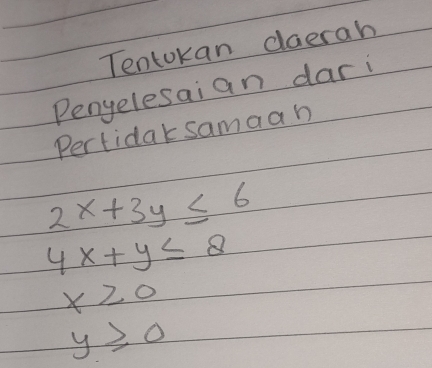 Tentukan daerah
Penyelesaian dari
Pertidaksamaan
2x+3y ≤ 6
4x+y ≤ 8
x ≥ 0
y ≥ 0